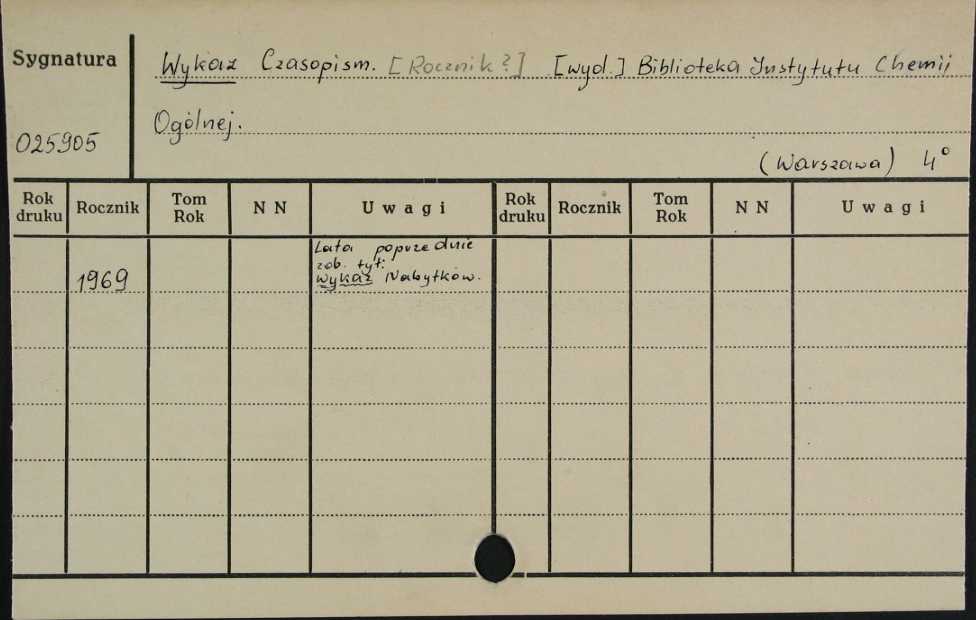 Sygnatura
Wykaz Czasopism. [Rocznik?] [wyd.] Biblioteka Instytutu Chemii
Ogólnej.
025905
(Warszawa) 4°
Rok druku Rocznik Tom Rok N N Uwagi Rok druku Rocznik Tom Rok N N Uwagi
Lata poprzednie
zob. tyt:
1969 Wykaz Nabytków.